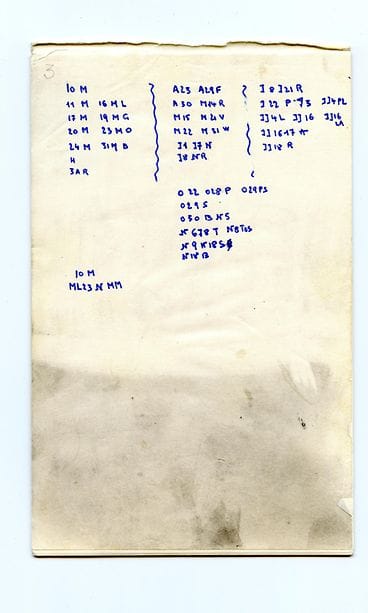 3
10 M
11 M 16 M L
17 M 19 M G
20 M 23 M O
24 M 31 M B
H
3AR
A23 A29F
A30 M14R
M15 M21V
M22 M31W
J1 J7N
J8 NR
J8 J21R
J22 P
JJ4L JJ16
JJ1617
JJ18 R
O22 O28P O29PS
O29S
O30 B NS
N678T
N9 N18S
N18 B
10 M
ML23 N MM